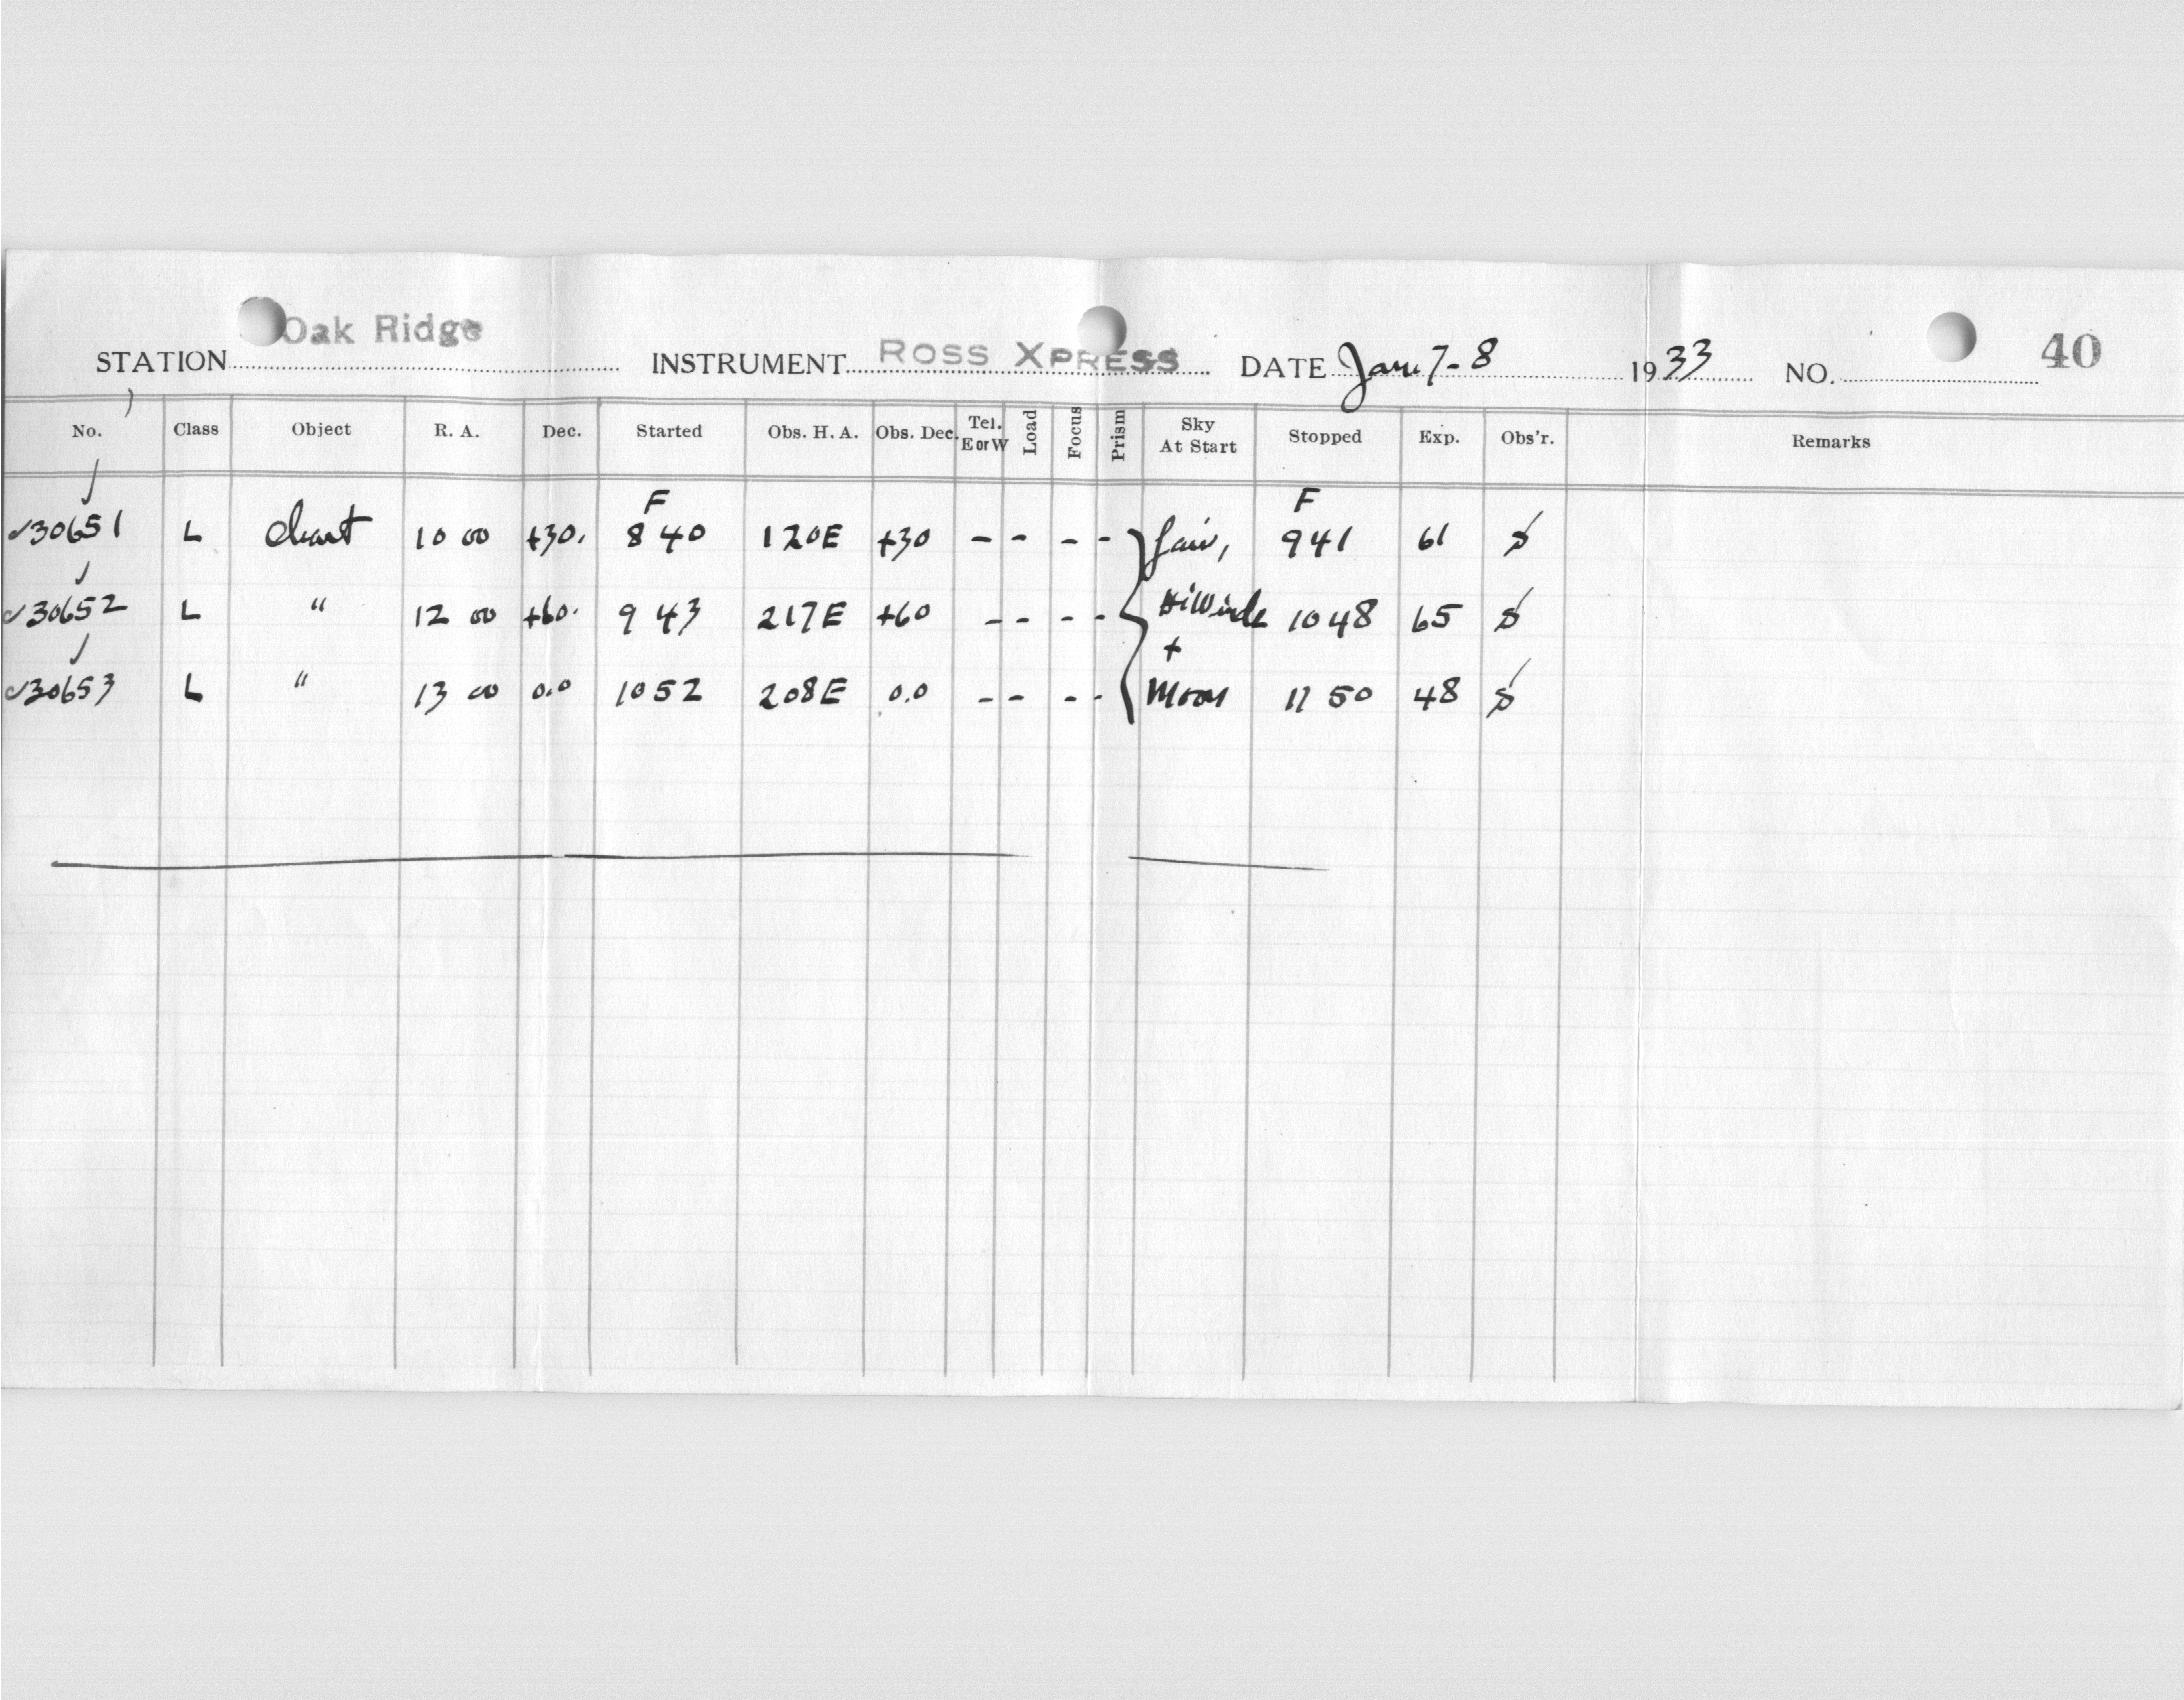 STATION Oak Ridge INSTRUMENT ROSS XPRESS DATE Jan. 7-8 1933 NO. 40
No. Class Object R. A. Dec. Started Obs. H. A. Obs. Dec. Tel. E or W Load Focus Prism Sky At Start Stopped Exp. Obs'r. Remarks
F F
30651 L Chart 10 00 +30. 8 40 120E +30 - - - - fair, 941 61
30652 L " 12 00 +60. 9 43 217E +60 - - - - HiWinds 1048 65
+
30653 L " 13 00 0.0 1052 208E 0.0 - - - - Moon 11 50 48